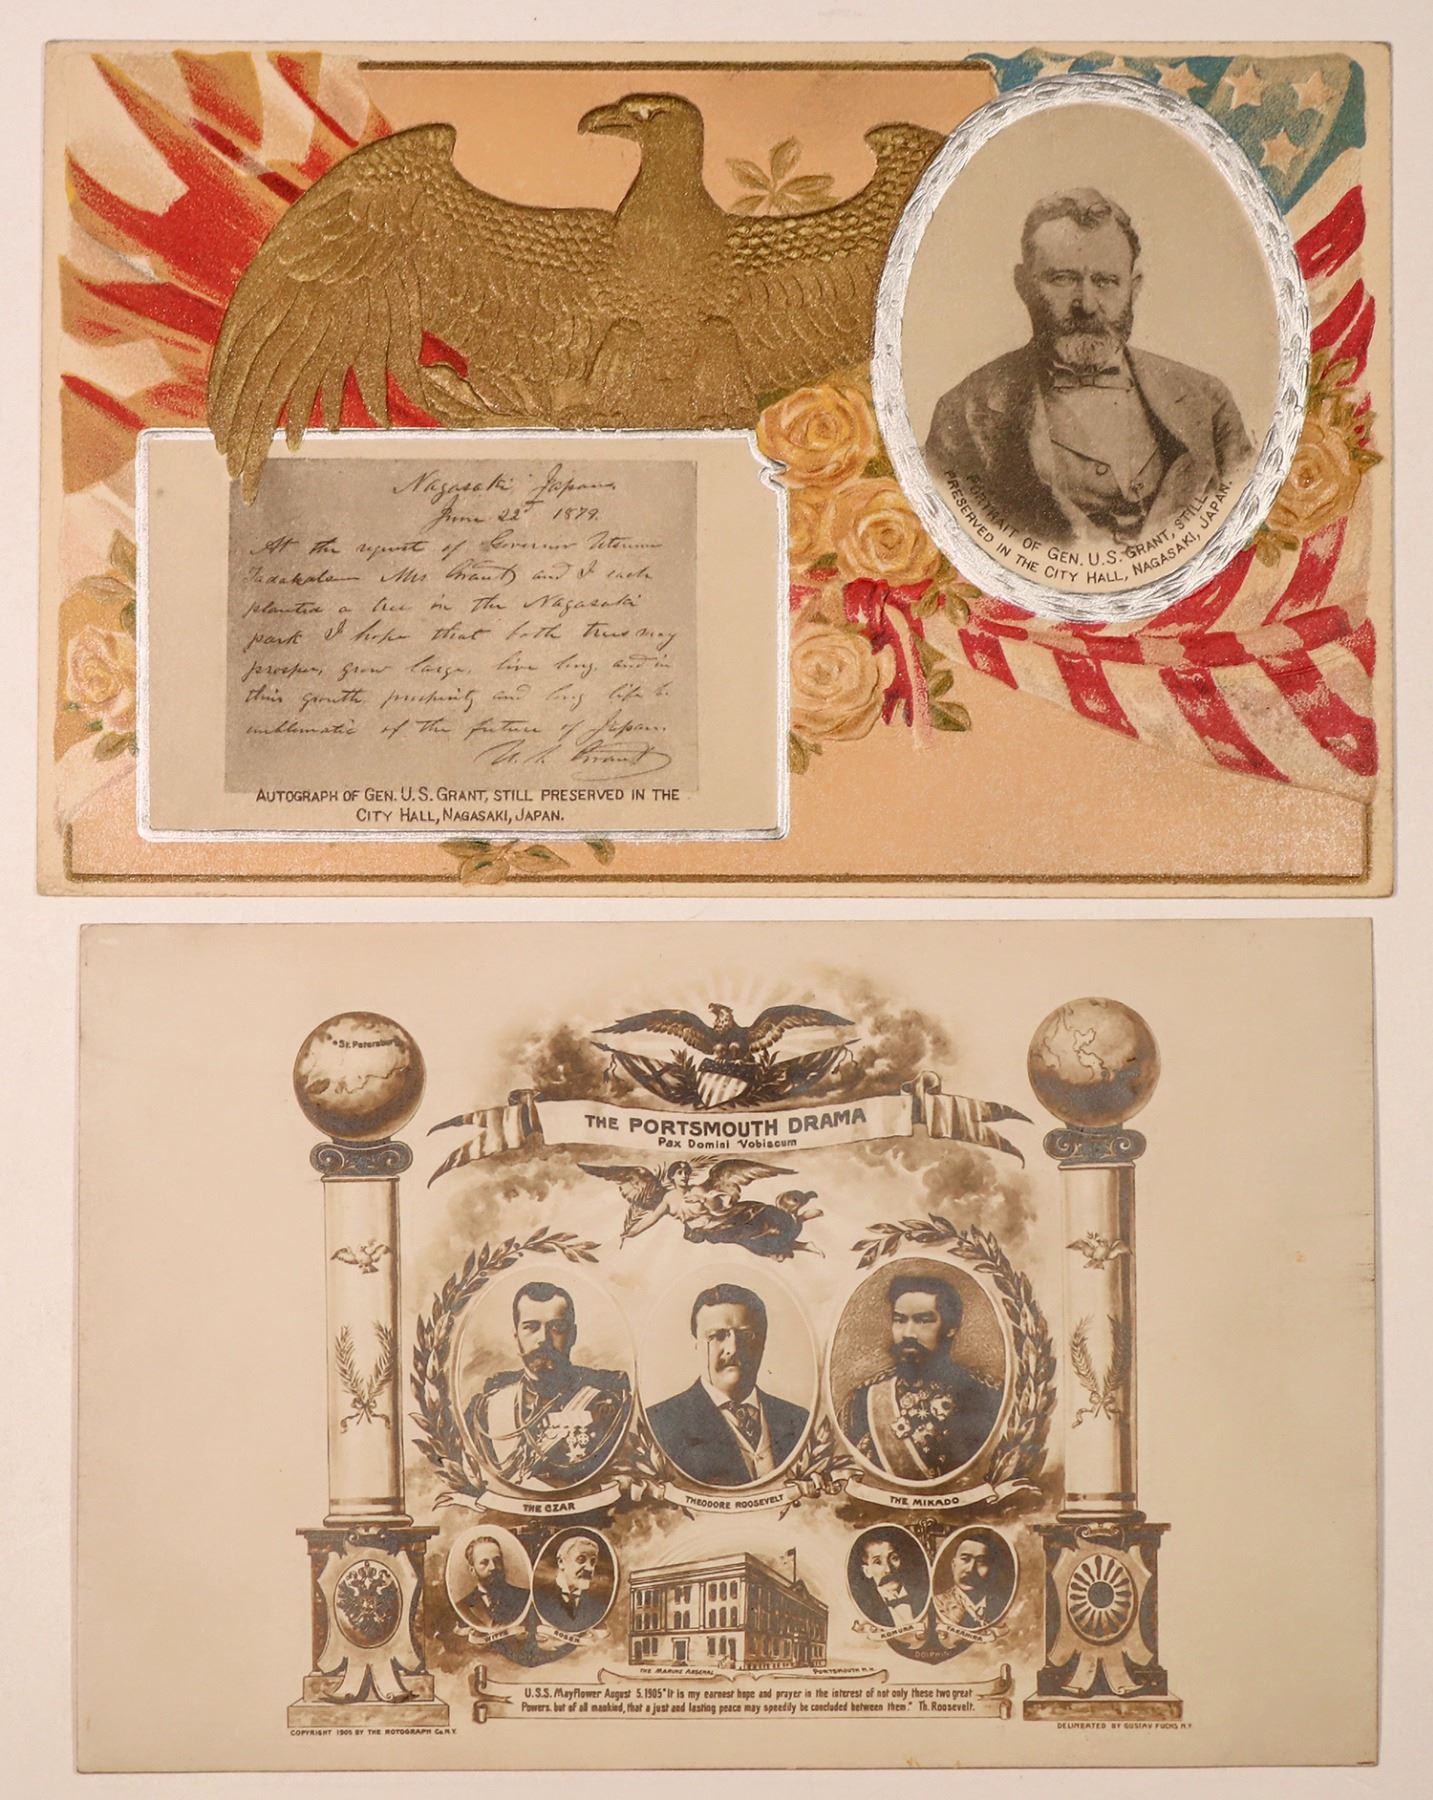 Nagasaki Japan,
June 22d 1879.
At the request of Governor Utsumi
Tadakatsu Mrs Grant and I each
planted a tree in the Nagasaki
park. I hope that both trees may
prosper, grow large, live long, and in
their growth, prosperity and long life be
emblematic of the future of Japan.
U. S. Grant
AUTOGRAPH OF GEN. U.S. GRANT, STILL PRESERVED IN THE
CITY HALL, NAGASAKI, JAPAN.
PORTRAIT OF GEN. U.S. GRANT, STILL
PRESERVED IN THE CITY HALL, NAGASAKI, JAPAN.
St. Petersburg
THE PORTSMOUTH DRAMA
Pax Domini Vobiscum
THE CZAR
THEODORE ROOSEVELT
THE MIKADO
WITTE
ROSEN
KOMURA
TAKAHIRA
DOLPHIN
THE MARINE ARSENAL
PORTSMOUTH N.H.
U.S.S. Mayflower August 5. 1905 "It is my earnest hope and prayer in the interest of not only these two great
Powers, but of all mankind, that a just and lasting peace may speedily be concluded between them." Th. Roosevelt.
COPYRIGHT 1905 BY THE ROTOGRAPH Co. N.Y.
DELINEATED BY GUSTAV FUCHS N.Y.